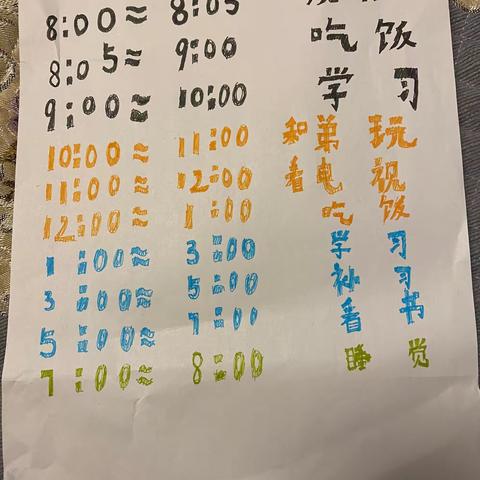 8:00≈ 8:05
8:05≈ 9:00 吃饭
9:00≈ 10:00 学习
10:00≈ 11:00 和弟玩
11:00≈ 12:00 看电视
12:00≈ 1:00 吃饭
1:00≈ 3:00 学习
3:00≈ 5:00 补习
5:00≈ 7:00 看书
7:00≈ 8:00 睡觉